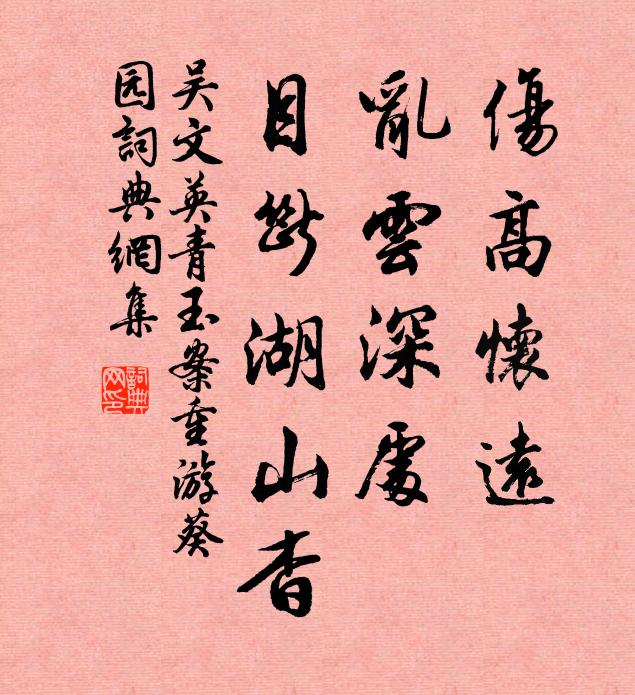 傷高懷遠
亂雲深處
目斷湖山杳
吴文英青玉案重游葵
园詞典網集
詞典
网印